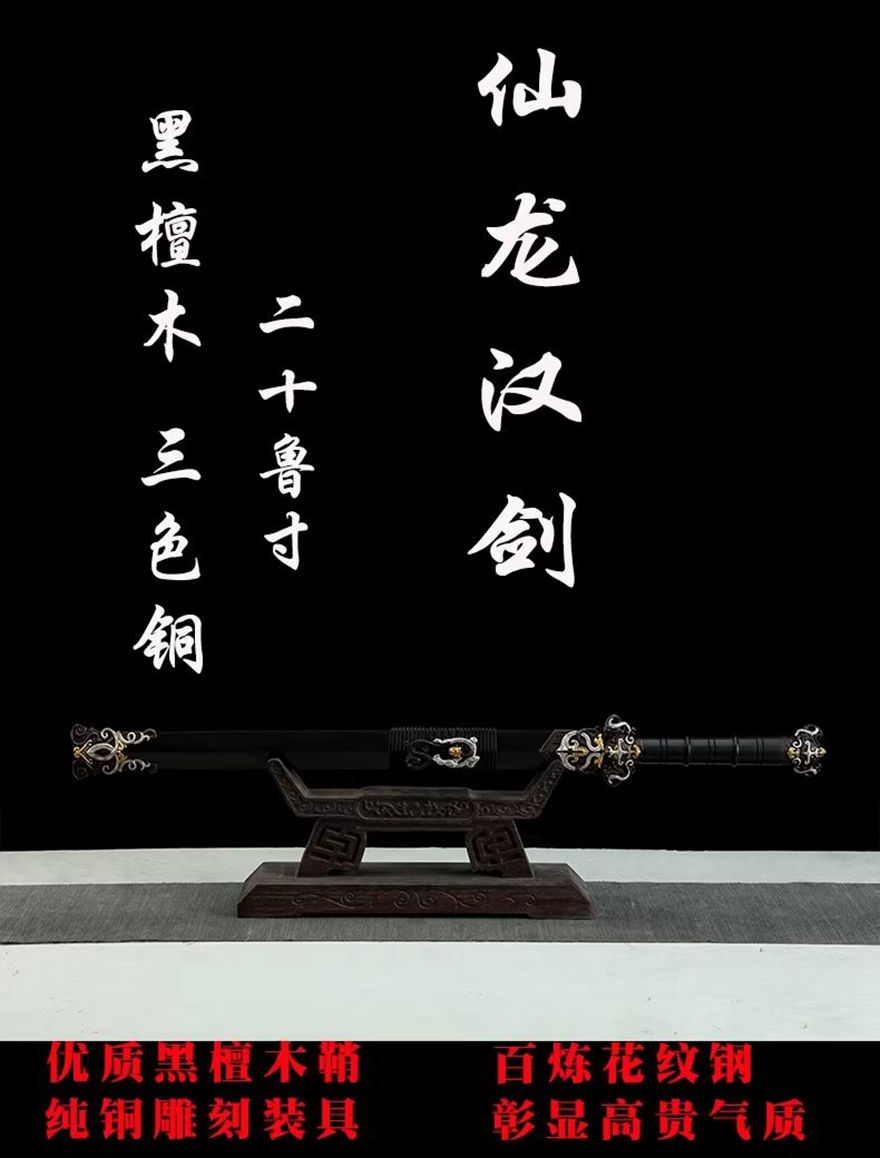 仙龙汉剑
二十鲁寸
黑檀木 三色铜
优质黑檀木鞘
纯铜雕刻装具
百炼花纹钢
彰显高贵气质